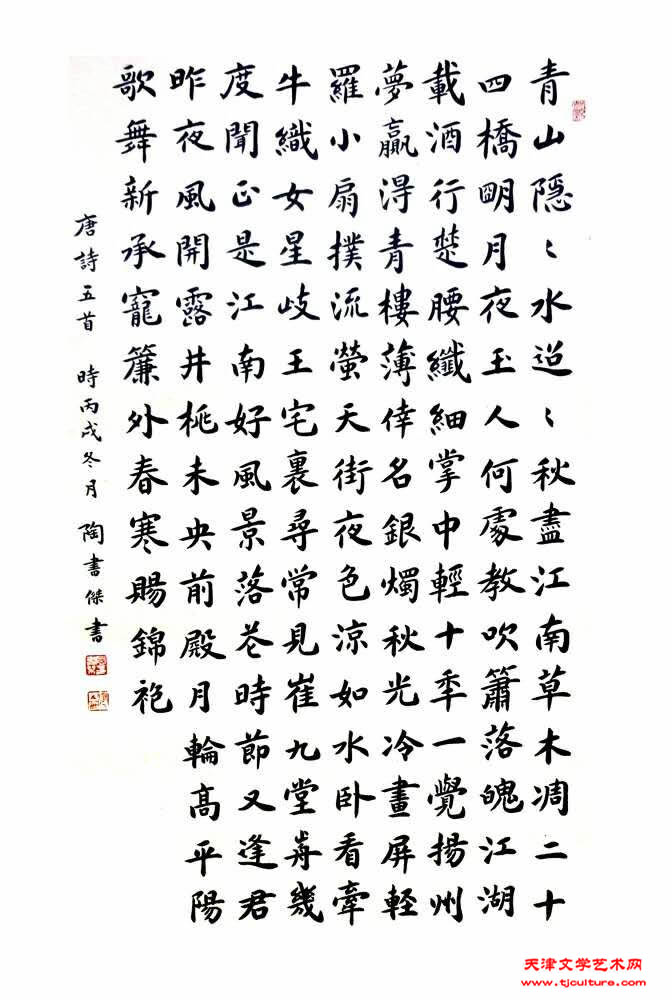 青山隱〻水迢〻秋盡江南草木凋二十
四橋朙月夜玉人何處教吹簫落魄江湖
載酒行楚腰纖細掌中輕十年一覺揚州
夢贏得青樓薄倖名銀燭秋光冷畫屏輕
羅小扇撲流螢天街夜色涼如水卧看牽
牛織女星歧王宅裏尋常見崔九堂前幾
度聞正是江南好風景落花時節又逢君
昨夜風開露井桃未央前殿月輪高平陽
歌舞新承寵簾外春寒賜錦袍
唐詩五首 時丙戌冬月 陶書傑書
天津文学艺术网
www.tjculture.com